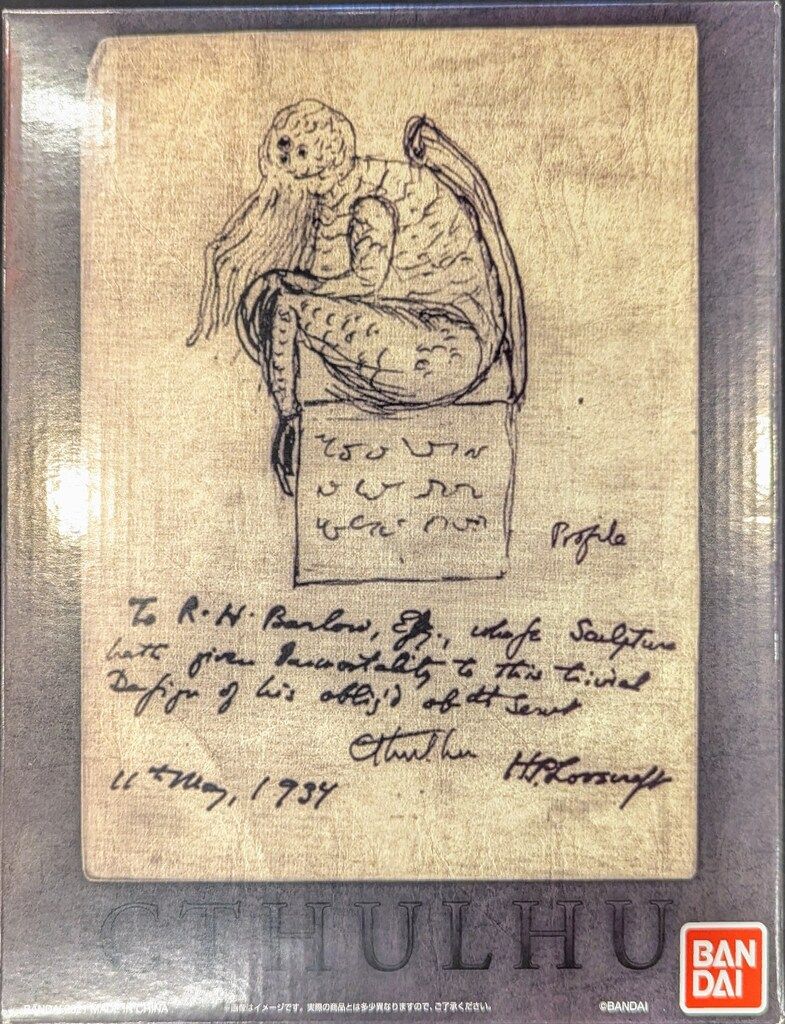 Profile
To R. H. Barlow, Esq., whose Sculpture
hath given Immortality to this trivial
Design of his oblig'd obdt Servt
Cthulhu
H.P. Lovecraft
11th May, 1934
CTHULHU
BAN
DAI
BANDAI 2021 MADE IN CHINA
※画像はイメージです。実際の商品とは多少異なりますので、ご了承ください。
©BANDAI